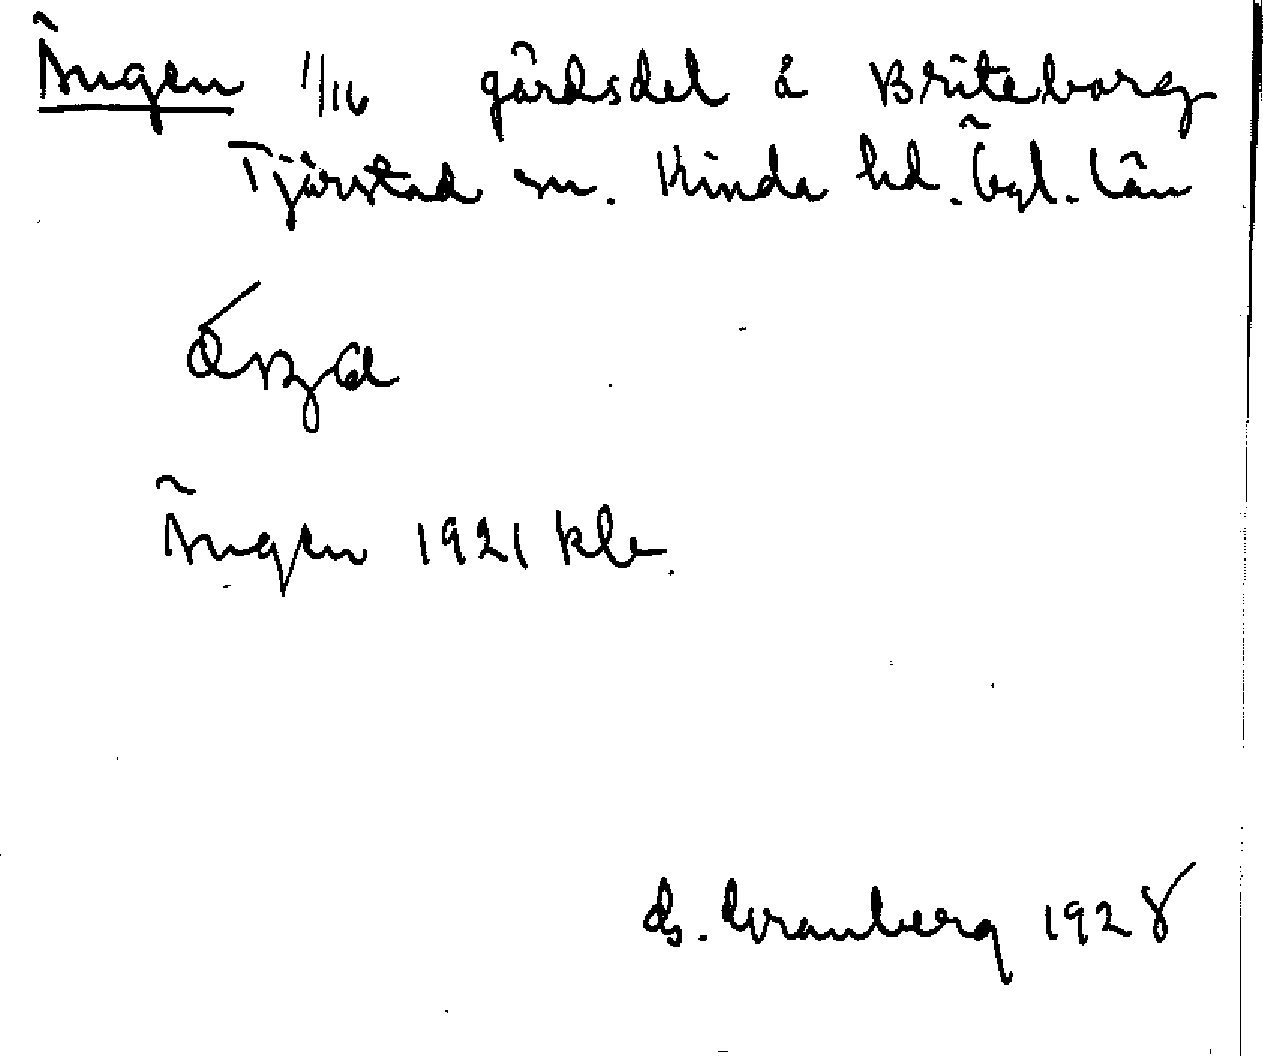 Ängen 1/16 gårdsdel å Briteborg
Tjärstad sn. Kinda hd. Ögl. län
Ängen 1921 kle
G. Granberg 1928